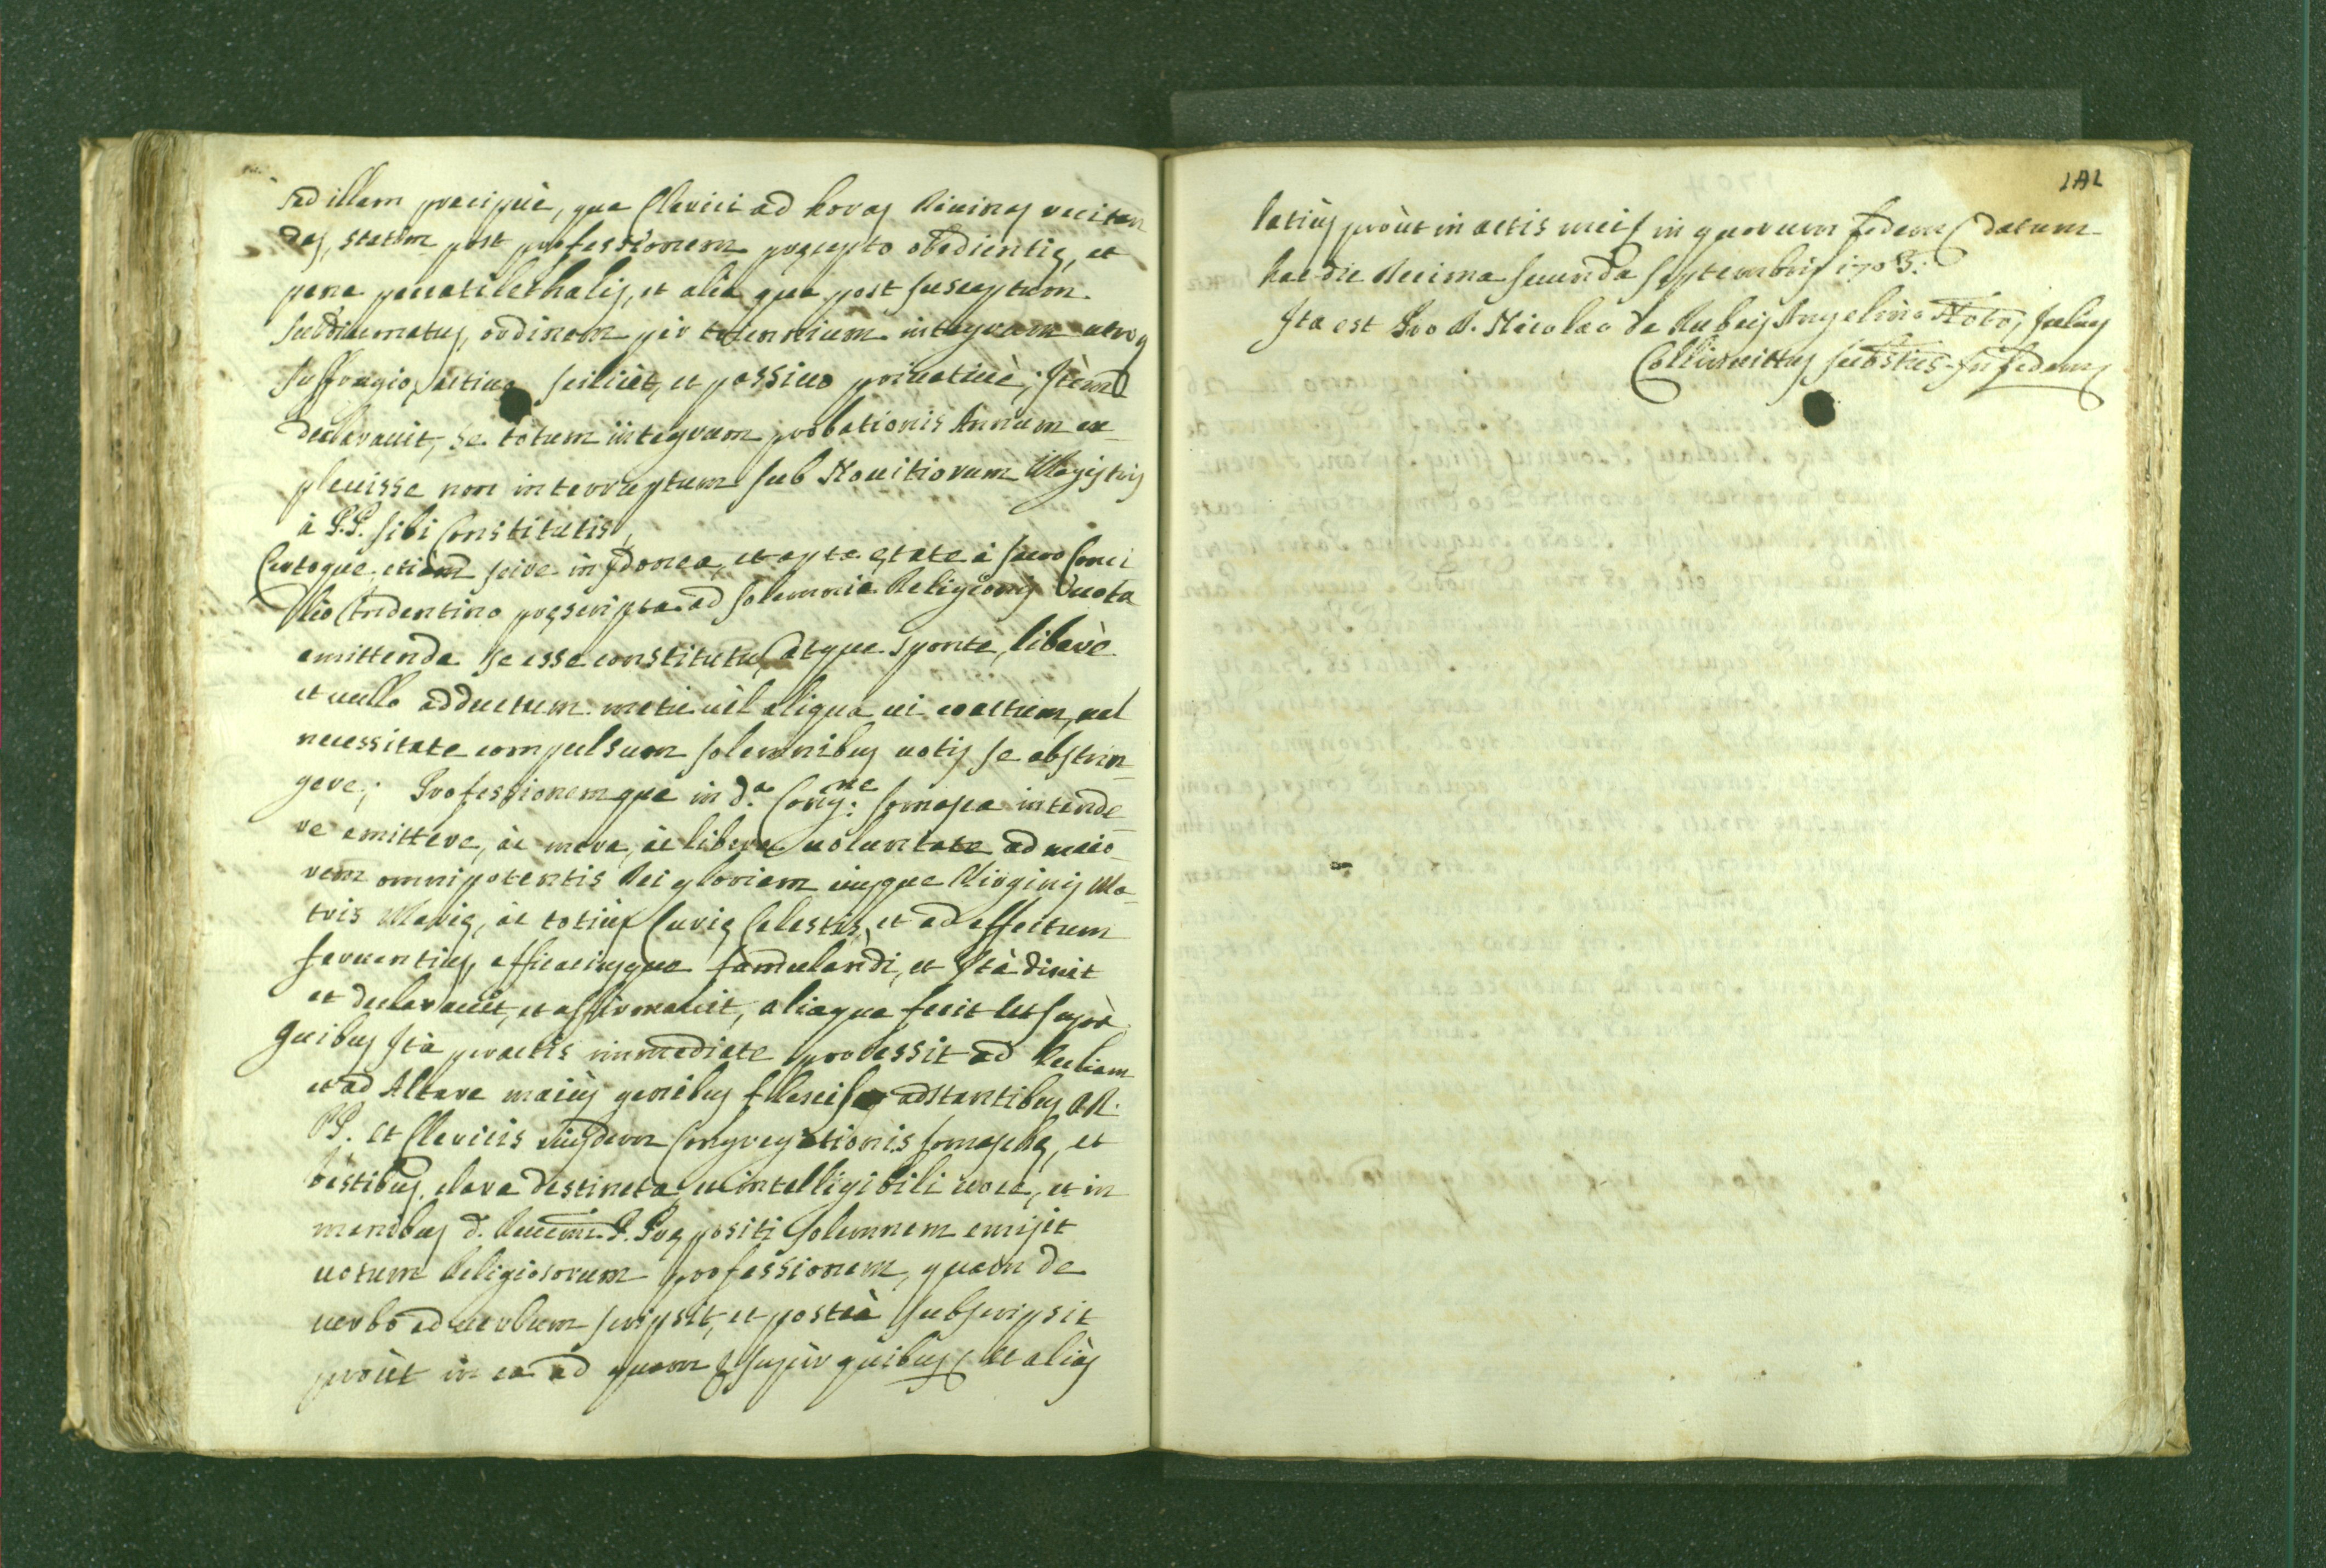 sed illam precipuè, qua Clerici ad horas Diuinas recitan
das, statim post professionem pręcepto obedientię, et
pena peccati lethalis, et alia qua post susceptum
subdiaconatus ordinem per totum integrum utroq
suffragio, actiuo scilicèt, et passiuo priuatiuè; Itèm
declarauit, se totum integrum probationis Annum ex=
pleuisse non interruptum sub Nouitiorum Magistris
à P.P. sibi Constitutis,
Certoque etiam scire in Idonea, et apta ętate à sacro Conci
lio Tridentino pręscripta ad solemnia Religionis Vuota
emittenda se esse constitutus, Atque sponte, liberè
et nullo adductum metu uèl aliqua ui coactum, uel
necessitate compulsum solemnibus uotis se abstrin=
gere; Professionemque in d.ª Cong.ne Somasca intende=
re emittere, àc mera, àc libera uoluntate ad maio=
rem omnipotentis Dei gloriam eiusque Virginis Ma=
tris Marię, àc totius Curię Celestis, et ad effectum
feruentius, efficaciusque famulandi, et Ità dixit
et declarauit, et affirmauit, aliaque fecit Ut suprà.
Quibus Ità peractis immediate processit ad Ecclesiam
et ad Altare maius genibus flexis adstantibus RR.
PP. et Clericis eiusdem Congregationis Somaschę, et
testibus, clara distincta, et intelligibili uoce, et in
manibus d. Reuemi P. Prępositi solemnem emisit
uotum Religiosorum professionem, quam de
uerbo ad uerbum scripsit, et posteà subscripsit
proùt in ea ad quam & supèr quibus & et aliàs
141
latiùs proùt in actis meis in quorum fidem & datum
hac die decima secunda septembris 1703:
Ita est Pro D. Nicolao de Rubeis Angelino Noto, Iulius
Colliuicittus substus In fidem